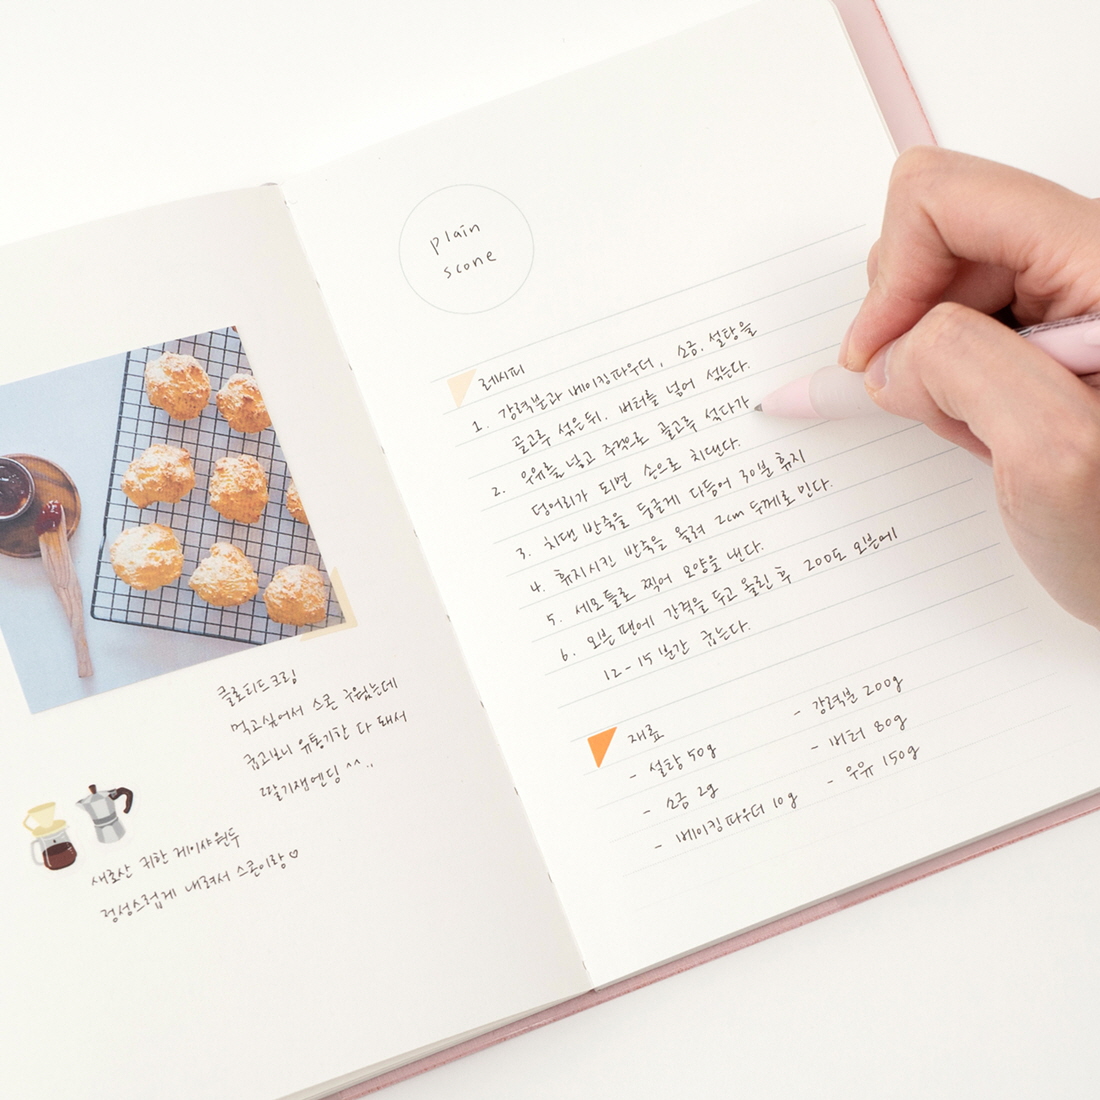 클로티드크림
먹고싶어서 스콘 구웠는데
굽고보니 유통기한 다 돼서
딸기잼엔딩 ^^..
새로산 귀한 게이샤원두
정성스럽게 내려서 스콘이랑♡
plain
scone
레시피
1. 강력분과 베이킹파우더, 소금, 설탕을
골고루 섞은뒤. 버터를 넣어 섞는다.
2. 우유를 넣고 주걱으로 골고루 섞다가
덩어리가 되면 손으로 치댄다.
3. 치댄 반죽을 둥글게 디듬어 30분 휴지
4. 휴지시킨 반죽을 올려 2cm 두께로 민다.
5. 세모틀로 찍어 모양을 낸다.
6. 오븐 팬에 간격을 두고 올린 후 200도 오븐에
12-15분간 굽는다.
재료
- 설탕 50g
- 소금 2g
- 베이킹파우더 10g
- 강력분 200g
- 버터 80g
- 우유 150g